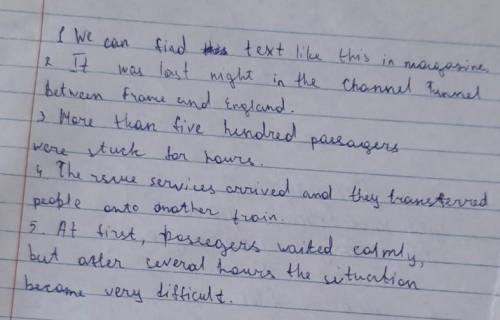 1 We can find text like this in margasine.
2 It was last night in the Channel Tunnel
between Frame and England.
3 More than five hundred passagers
were stuck for hours.
4. The resue services arrived and they transferred
people onto another train.
5. At first, passegers waited calmly,
but after several hours the situation
became very difficult.